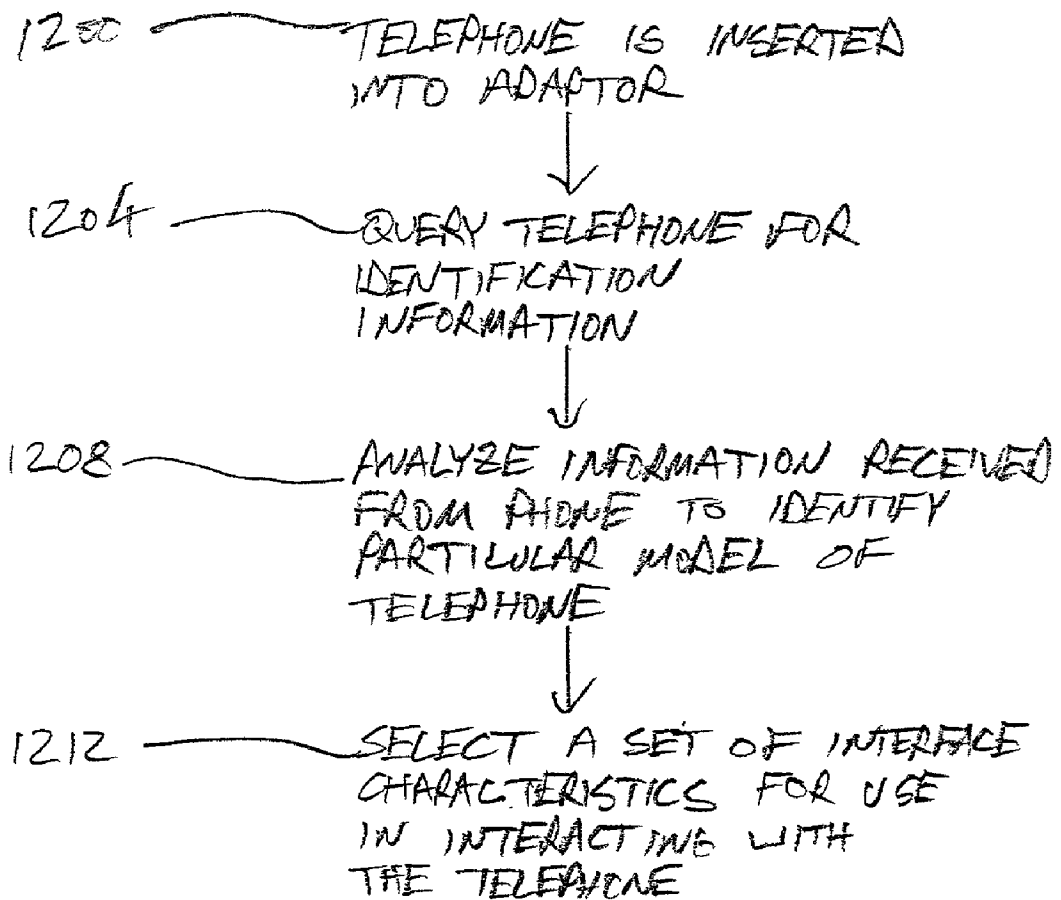 1200 TELEPHONE IS INSERTED
INTO ADAPTOR
1204 QUERY TELEPHONE FOR
IDENTIFICATION
INFORMATION
1208 ANALYZE INFORMATION RECEIVED
FROM PHONE TO IDENTIFY
PARTICULAR MODEL OF
TELEPHONE
1212 SELECT A SET OF INTERFACE
CHARACTERISTICS FOR USE
IN INTERACTING WITH
THE TELEPHONE